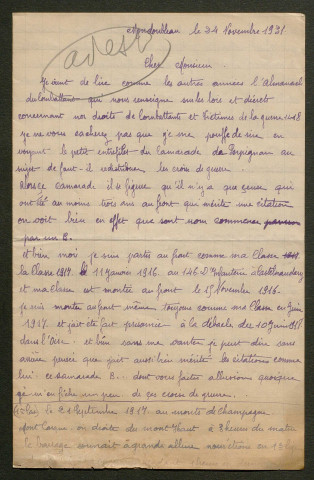 Mondoubleau le 24 Novembre 1931
adest
Cher Monsieur.
Je viens de lire comme les autres années l'Almanach
du Combattant qui nous renseigne sur les lois et décrets
concernant nos droits de Combattants et Victimes de la guerre 14-18
je ne vous cacherez pas que je me pouffe de rire en
voyant le petit entrefilet du Camarade de Perpignan au
sujet de faut-il les croix de guerre.
Alors ce camarade il se figure qu'il n'y a que ceux qui
ont été au moins trois ans au front qui mérite une citation
on voit bien en effet que son nom commence
par un B.
et bien moi je suis partis au front comme ma Classe
la Classe 1917. le 11 Janvier 1916. au 146 d'Infanterie
et ma Classe est montée au front le 15 Novembre 1916.
je suis monter au front même toujours comme ma Classe en Juin
1917. et j'ai été fait prisonnier à la débacle du 10 Juin 1918
dans l'Oise. et bien sans me vanter je peut dire sans
arrière pensée que j'ai aussi bien mérité les citations comme
lui ce camarade B... dont vous faites allusion quoique
je m'en fiche un peu de ces croix de guerre.
le 21 Septembre 1917. au monts de Champagne
mont Cornillet on droite du mont Haut à 3 heures du matin
le barrage à grande allure nous étions